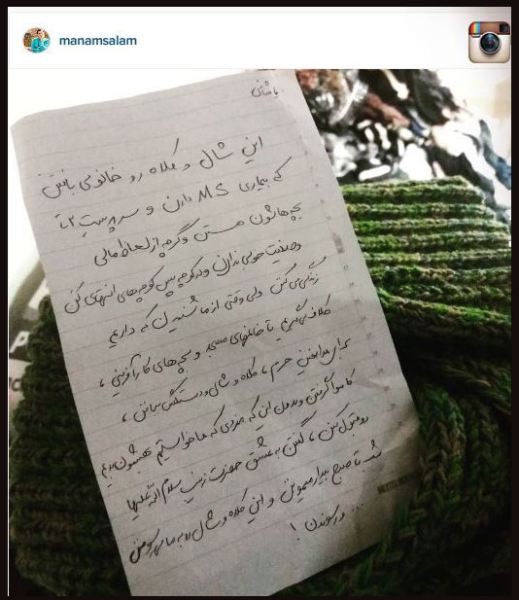 manamsalam
این شال و کلاه رو خانومی بافتن
که بیماری MS دارن و سرپرست ۳ تا
بچه هاشون هستن و گرچه از لحاظ مالی
وضعیت خوبی ندارن و در کوچه پس کوچه های انتهای کن
زندگی می کنن ولی وقتی از ما شنیدن که داریم
کلاف می گیریم تا خانمهای مسجد و بچه های کارآفرینی ،
برای مدافعین حرم ، کلاه و شال و دستکش ببافن ،
کاموا گرفتن و بدون این که مزدی که ما خواستیم بهشون بدیم
رو قبول کنن ، گفتن به عشق حضرت زینب سلام الله علیها
شب تا صبح بیدار میمونن و این کلاه و شال رو به ما می رسونن
... و رسوندن !